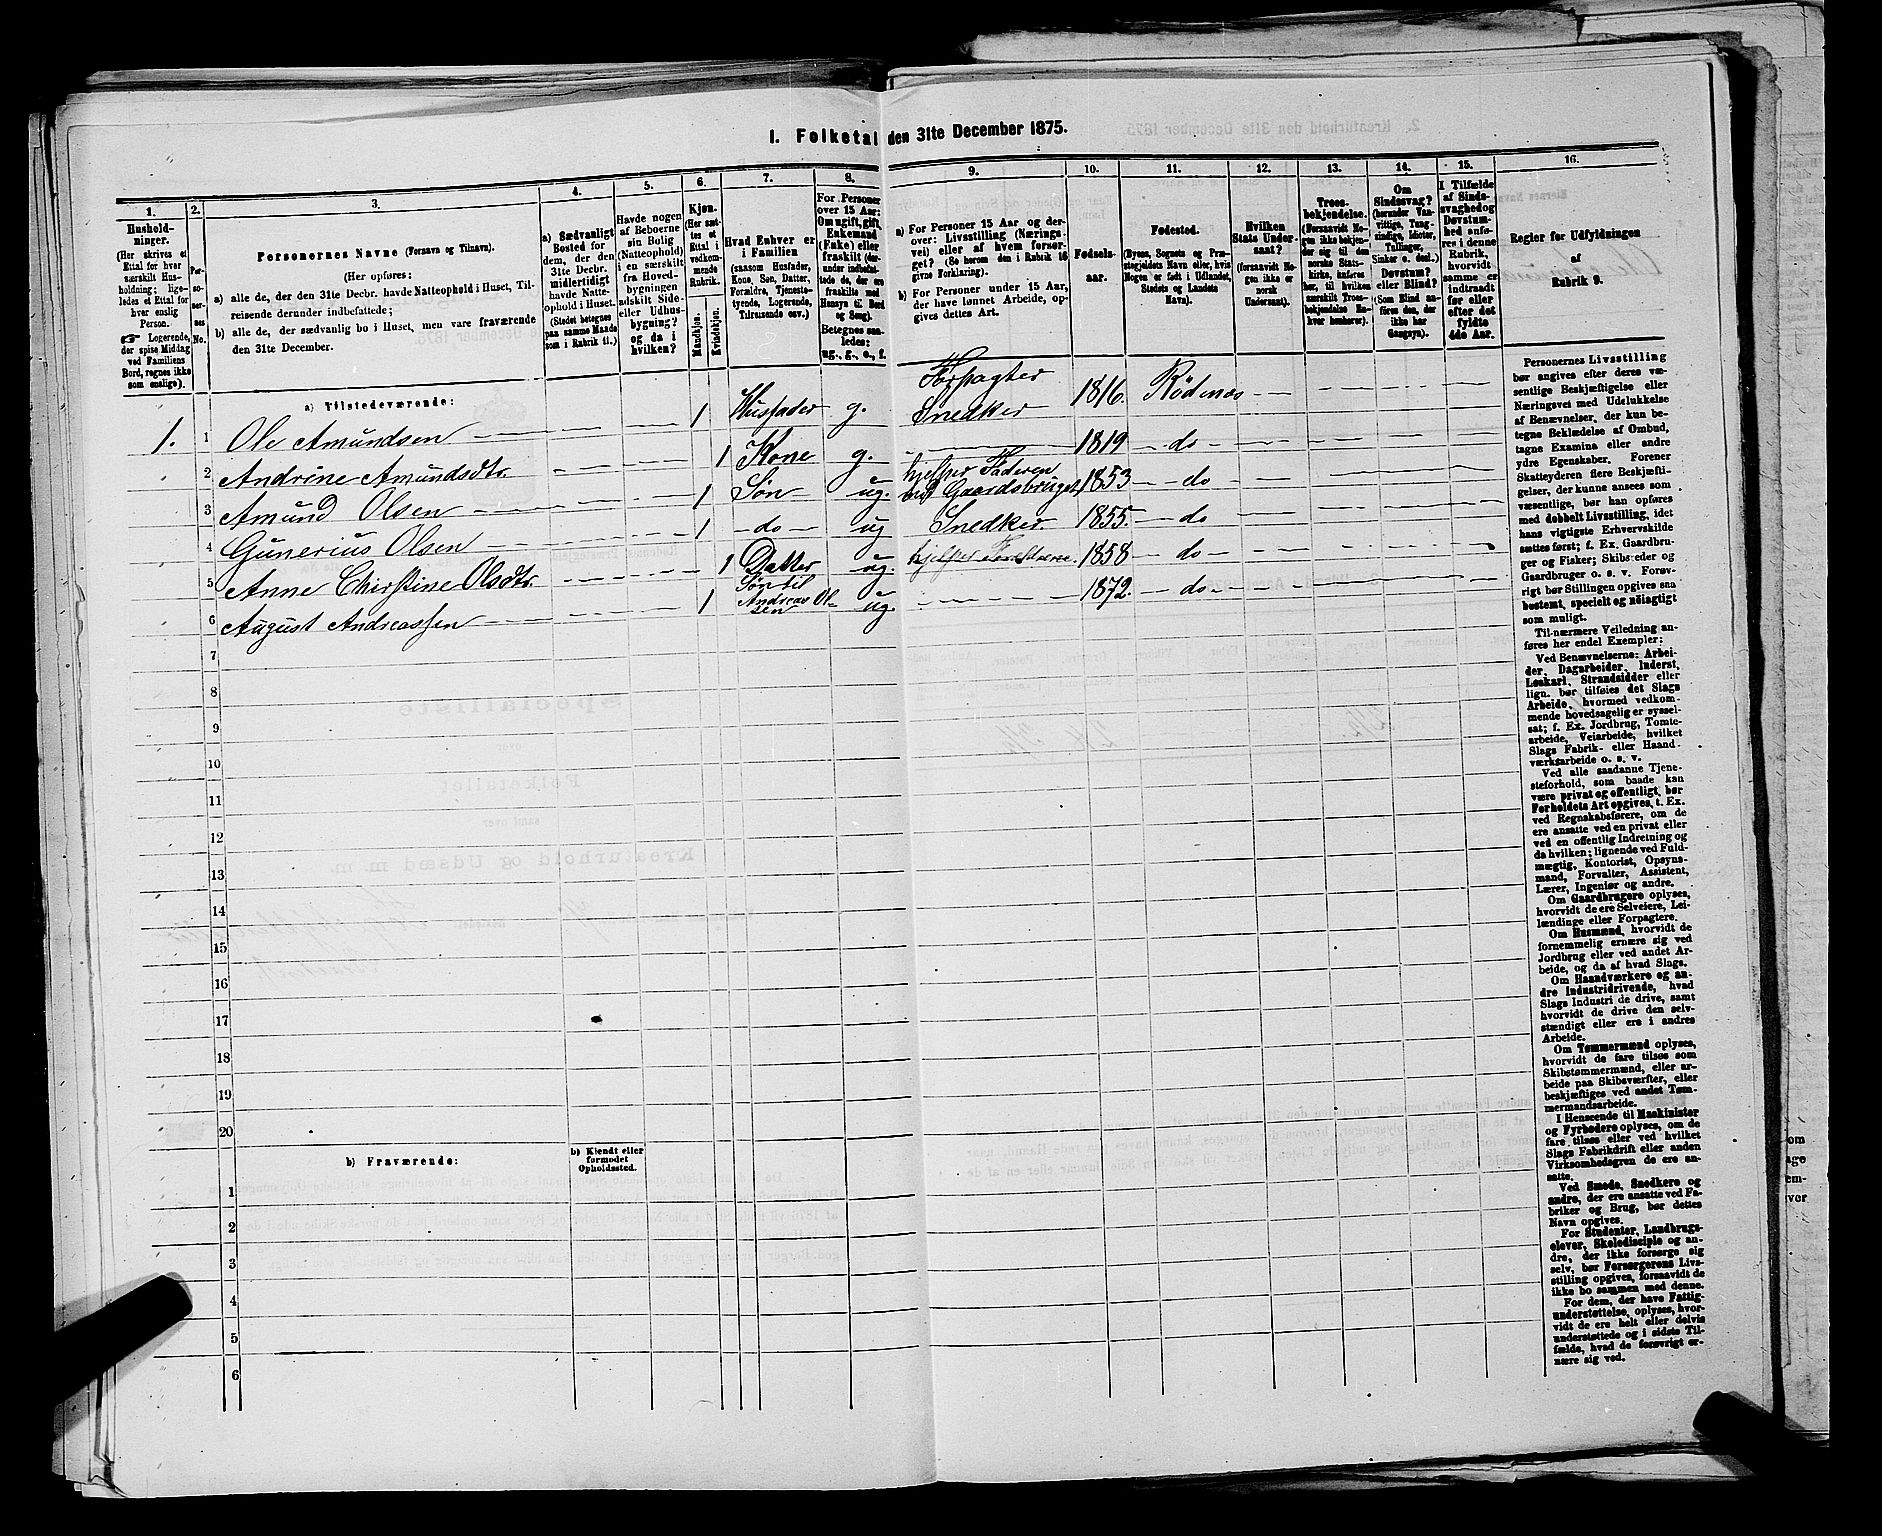 I. Folketal den 31te December 1875.
1.
Hushold-
ninger.
(Her skrives et
Ettal for hver
særskilt Hus-
holdning; lige-
ledes et Ettal for
hver enslig
Person.
☞ Logerende,
der spise Middag
ved Familiens
Bord, regnes ikke
som enslige).
2.
Per-
so-
ner-
nes
No.
3.
Personernes Navne (Fornavn og Tilnavn).
(Her opføres:
a) alle de, der den 31te Decbr. havde Natteophold i Huset, Til-
reisende derunder indbefattede;
b) alle de, der sædvanlig bo i Huset, men vare fraværende
den 31te December.
4.
a) Sædvanligt
Bosted for
dem, der den
31te Decbr.
midlertidigt
havde Natte-
ophold i Huset.
(Stedet betegnes
paa samme Maade
som i Rubrik 11.)
5.
Havde nogen
af Beboerne
sin Bolig
(Natteophold)
i en særskilt
fra Hoved-
bygningen
adskilt Side-
eller Udhus-
bygning?
og da i
hvilken?
6.
Kjøn.
(Her sæt-
tes et
Ettal i
vedkom-
mende
Rubrik.
Mandkjøn.
Kvindekjøn.
7.
Hvad Enhver er
i Familien
(saasom Husfader,
Kone, Søn, Datter,
Forældre, Tjeneste-
tyende, Logerende,
Tilreisende osv.)
8.
For Personer
over 15 Aar:
Om ugift, gift,
Enkemand
(Enke) eller
fraskilt (der-
under indbefat-
tede de, der ere
fraskilte med
Hensyn til Bord
og Seng).
Betegnes saa-
ledes:
ug., g., e., f.
9.
a) For Personer 15 Aar og der-
over: Livsstilling (Nærings-
vei) eller af hvem forsør-
get? (Se herom den i Rubrik 16
givne Forklaring).
b) For Personer under 15 Aar,
der have lønnet Arbeide, op-
gives dettes Art.
10.
Fødsels-
aar.
11.
Fødested.
(Byens, Sognets og Præ-
stegjeldets Navn eller, hvis
Nogen er født i Udlandet,
Stedets og Landets
Navn).
12.
Hvilken
Stats Under-
saat?
(forsaavidt No-
gen ikke er
norsk
Undersaat).
13.
Troes-
bekjendelse.
(Forsaavidt No-
gen ikke bekjen-
der sig til den
norske Stats-
kirke, anføres
her, til hvilken
særskilt Troes-
bekjendelse En-
hver henhører).
14.
Om
Sindssvag?
(herunder Van-
vittige, Tung-
sindige, Idioter,
Tullinger,
Sinker o. desl.)
Døvstum?
eller Blind?
(Som Blind an-
føres den, der
ikke har
Gangsyn).
15.
I Tilfælde
af Sinds-
svaghed og
Døvstum-
hed anfø-
res i denne
Rubrik,
hvorvidt
samme er
indtraadt
før eller
efter det
fyldte
4de Aar.
16.
Regler for Udfyldningen
af
Rubrik 9.
a) Tilstedeværende:
1. 1 Ole Amundsen 1 Husfader g. Forpagter Snedker 1816. Rödenæs
2 Andrine Amundsdtr. 1 Kone g. 1819 do
3 Amund Olsen 1 Søn ug. hjelper Faderen ved Gaardsbruget 1853 do
4 Gunerius Olsen 1 do ug Snedker 1855. do
5 Anne Christine Olsdtr. 1 Datter ug. hjelper Forældrene. 1858 do
6 August Andreassen 1 Søn til Andreas Olsen ug. 1872. do
7
8
9
10
11
12
13
14
15
16
17
18
19
20
b) Fraværende:
b) Kjendt eller
formodet
Opholdssted.
1
2
3
4
5
6
Personernes Livsstilling
bør angives efter deres væ-
sentlige Beskjæftigelse eller
Næringsvei med Udelukkelse
af Benævnelser, der kun be-
tegne Beklædelse af Ombud,
tagne Examina eller andre
ydre Egenskaber. Forener
Skatteyderen flere Beskjæfti-
gelser, der kunne ansees som
væsentlige, bør han opføres
med dobbelt Livsstilling, idet
hans vigtigste Erhvervskilde
sættes først; f. Ex. Gaardbru-
ger og Fisker; Skibsreder og
Gaardbruger o. s. v. Forøv-
rigt bør Stillingen opgives saa
bestemt, specielt og nøiagtigt
som muligt.
Til nærmere Veiledning an-
føres her endel Exempler:
Ved Benævnelserne: Arbei-
der, Dagarbeider, Inderst,
Løskarl, Strandsidder eller
lign. bør tilføies det Slags
Arbeide, hvormed vedkom-
mende hovedsagelig er syssel-
sat; f. Ex. Jordbrug, Tomte-
arbeide, Veiarbeide, hvilket
Slags Fabrik- eller Haand-
værksarbeide o. s. v.
Ved alle saadanne Tjene-
steforhold, som baade kan
være privat og offentligt, bør
Forholdets Art opgives, t. Ex.
ved Regnskabsførere, om de
ere ansatte ved en privat eller
ved en offentlig Indretning og
da hvilken; lignende ved Fuld-
mægtig, Kontorist, Opsyns-
mand, Forvalter, Assistent,
Lærer, Ingeniør og andre.
Om Gaardbrugere oplyses,
hvorvidt de ere Selveiere, Lei-
lændinge eller Forpagtere.
Om Husmænd, hvorvidt de
fornemmelig ernære sig ved
Jordbrug eller ved andet Ar-
beide, og da af hvad Slags.
Om Haandværkere og an-
dre Industridrivende, hvad
Slags Industri de drive, samt
hvorvidt de drive den selv-
stændigt eller ere i andres
Arbeide.
Om Tømmermænd oplyses,
hvorvidt de fare tilsøs som
Skibstømmermænd, eller ar-
beide paa Skibsværfter, eller
beskjæftiges ved andet Tøm-
mermandsarbeide.
I Henseende til Maskinister
og Fyrbødere oplyses, om de
fare tilsøs eller ved hvilket
Slags Fabrikdrift eller anden
Virksomhedsgren de ere an-
satte.
Ved Smede, Snedkere og
andre, der ere ansatte ved Fa-
briker og Brug, bør dettes
Navn opgives.
For Studenter, Landbrugs-
elever, Skoledisciple og an-
dre, der ikke forsørge sig
selv, bør Forsørgerens Livs-
stilling opgives, forsaavidt de
ikke bo sammen med denne.
For dem, der have Fattig-
understøttelse, oplyses, hvor-
vidt de ere helt eller delvis
understøttede og i sidste Til-
fælde, hvad de forøvrigt er-
nære sig ved.